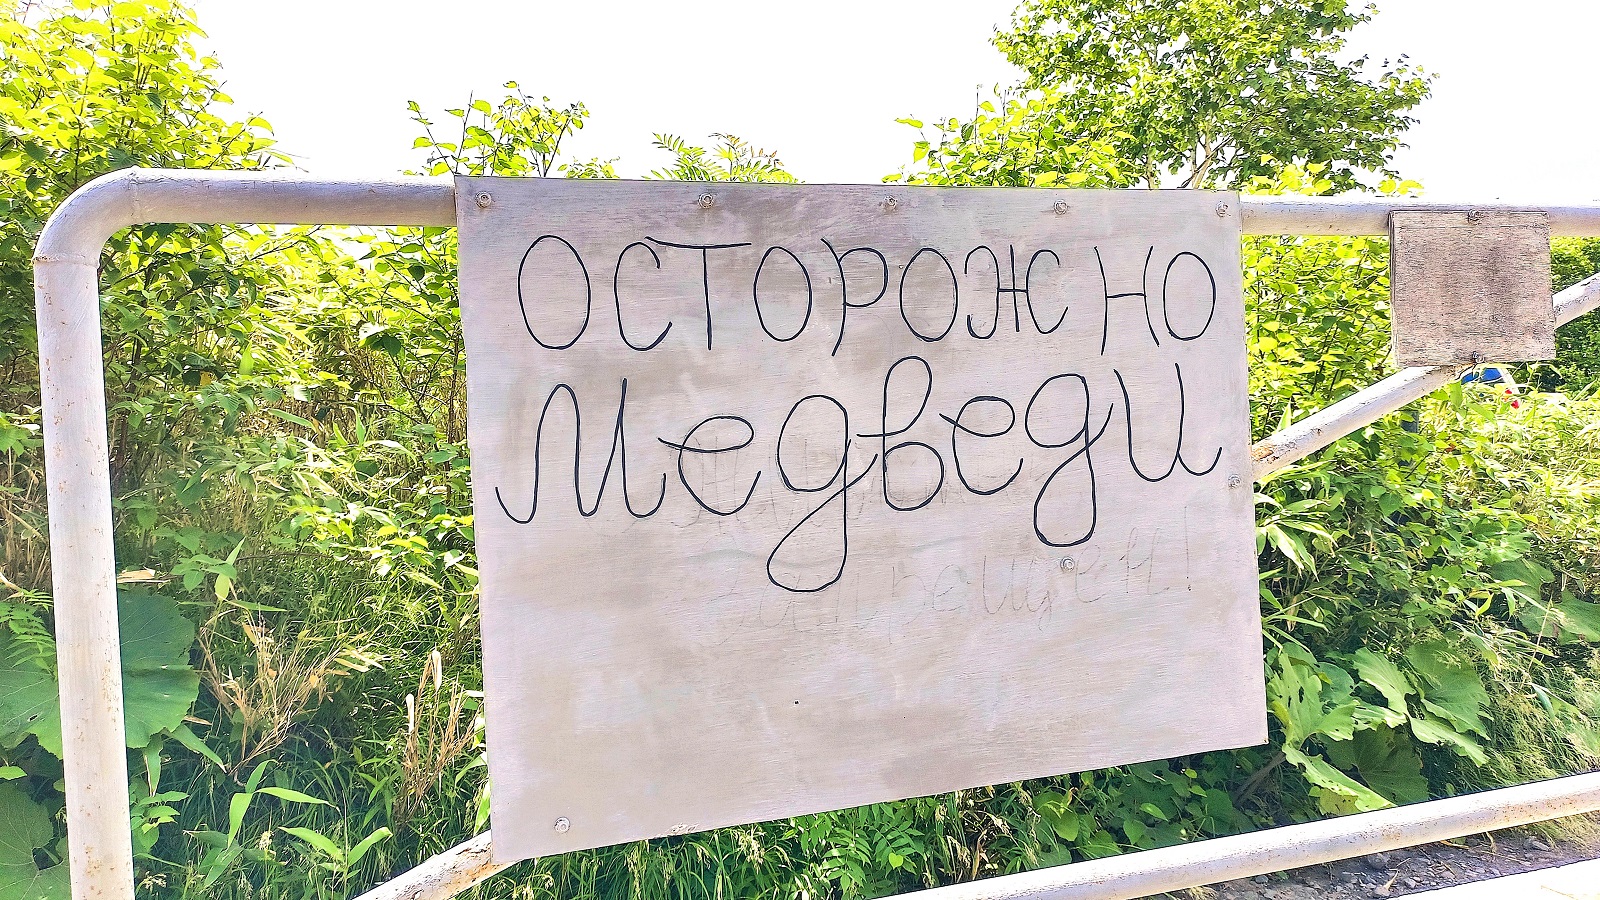 ОСТОРОЖНО
Медведи
запрещен!